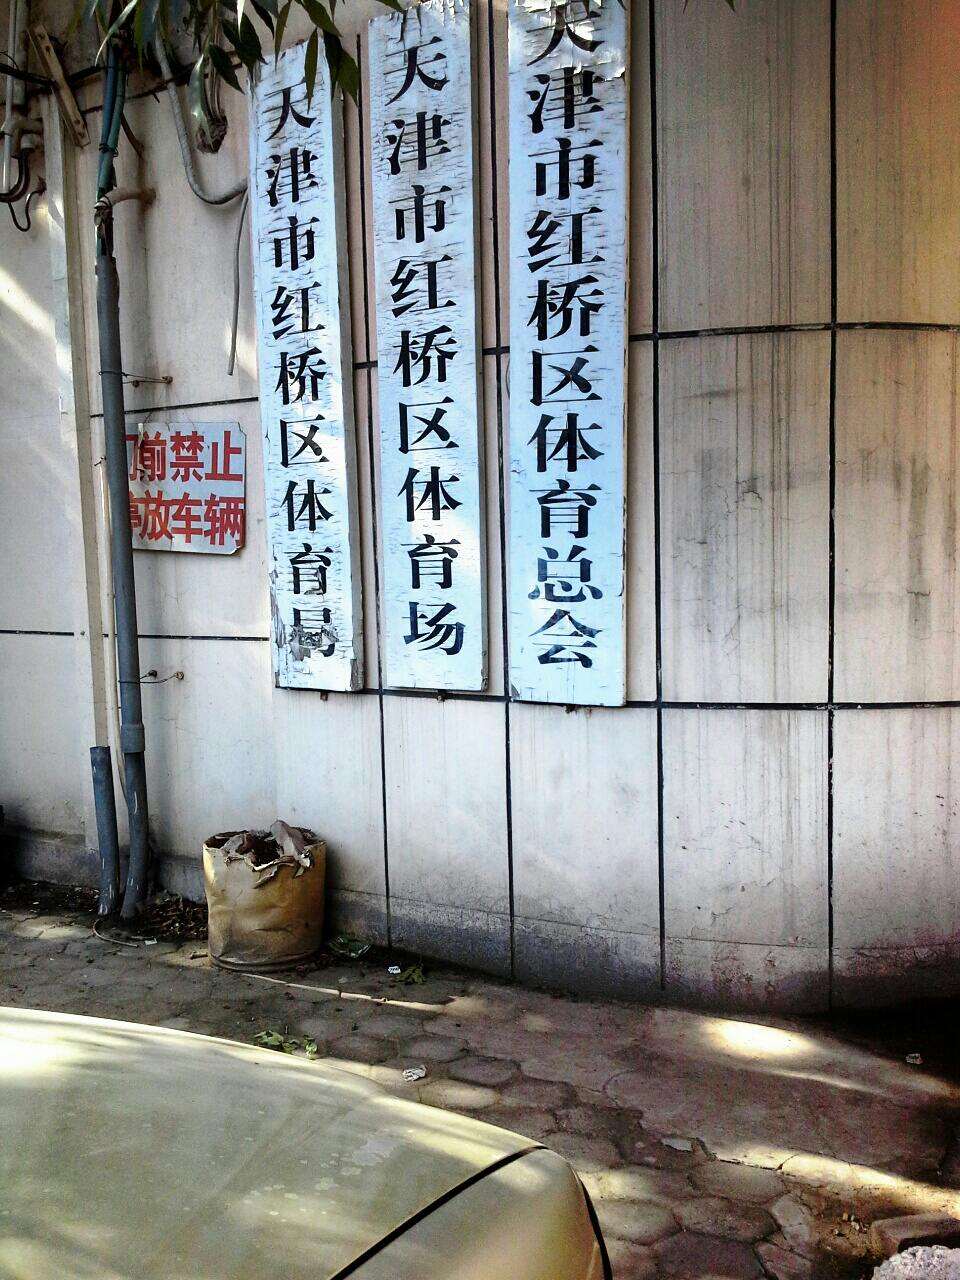 天津市红桥区体育局
天津市红桥区体育场
天津市红桥区体育总会
门前禁止
停放车辆